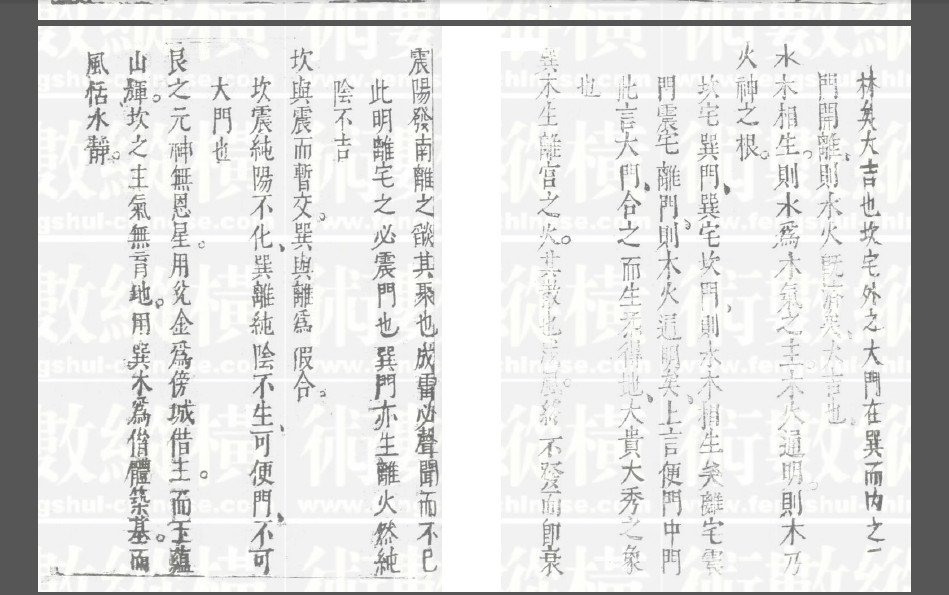 林矣大吉也坎宅外之大門在巽而内之一
門開離則水火既濟矣大吉也
水木相生。則水爲木氣之主。木火通明。則木乃
火神之根。
坎宅巽門、巽宅坎門、則水木相生矣離宅震
門震宅離門、則木火通明矣、上言便門中門
此言大門、合之而生尅得地、大貴大秀之象
也
巽木生離宮之火。其散也成風。終不發而即衰
震陽發南離之燄其聚也成雷必聲聞而不已
此明離宅之必震門也巽門亦生離火然純
陰不吉
坎與震而暫交。巽與離爲假合。
坎震純陽不化、巽離純陰不生、可便門、不可
大門也
艮之元神無恩星。用兌金爲傍城借主。而玉蘊
山輝。坎之主氣無育地。用巽木爲俏體築基。而
風恬水靜。